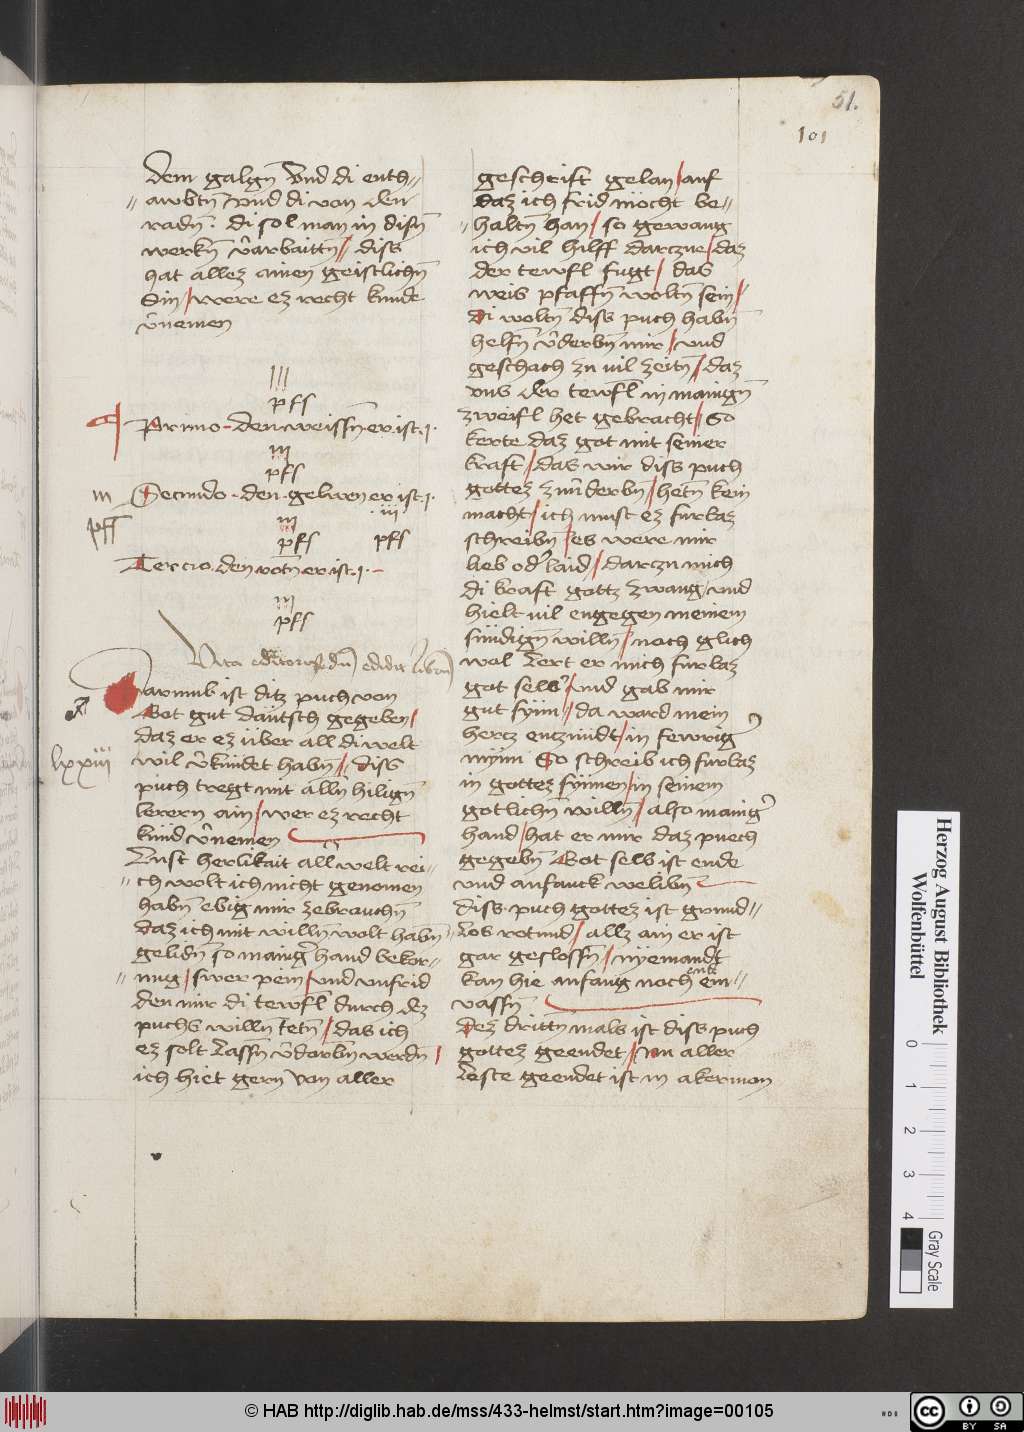 51.
101
dem galgn̄ Vnd di enth〃
〃awbtn̄ / vnd di von den
radn̄. di sol man in disn̄
werkn̄ v̄arbaittn̄ // diss
hat allez ainen geistlichn̄
Sin / were ez recht kunde
v̄nemen
iii
pfs
¶ Primo - den weissn̄ er ist .i.
iii
pfs
iii Secundo - den - gelwen er ist .i.
pff
iii iii
pfs pfs
Tercio . den rotn̄ er ist .i. -
iii
pfs
Darumb ist ditz puch von
Got gut däutsch gegeben /
daz er ez über all di welt
lxxiii
wil v̄kündet habn̄ // diss
puch tregt mit alln̄ hilign̄
lerern ain / wer ez recht
künd v̄nemen
Lust herlikait all welt rei〃
〃ch wolt ich nicht genomen
habn̄ ebig mir zebrauchn̄
daz ich mit willn̄ wolt habn̄
gelidn̄ so mainḡ hand bekor〃
〃nug / swer pein / vnd vnfrid
den mir di tewfl durch dez
puchs willn̄ tetn̄ / das ich
ez solt lassn̄ v̄derbn̄ werdn̄ /
ich hiet gern von aller
geschrift gelan / auf
daz ich frid möcht be〃
〃haltn̄ han / so gewang
ich vil hilff darczue / daz
der tewfl fugt / das
weis pfaffn̄ woltn̄ sein /
di woltn̄ diss puch habn̄
helfn̄ v̄derbn̄ mir / vnd
geschach zu vil zeitn̄ / daz
vns der tewfl in mainign̄
zweifl het gebracht / So
kerte daz got mit seiner
kraft / das wir diss puch
gottez zuūderbn̄ / hetn̄ kein
macht / ich must ez furbaz
schreibn̄ / es were mir
lieb odˀ laid / darczu mich
di kraft gottz zwang / vnd
hielt vil engegen meinem
sündign̄ willn̄ / noch glich
wol lert er mich furbaz
got selbˀ / vnd gab mir
gut synn / da ward mein
hercz enzündt / in fewrigˀ
mynn So schreib ich furbaz
in gottez synnen / in seinem
gotlichn̄ willn̄ / also mainigˀ
hand / hat er mir daz puech
gegebn̄ Got selb ist ende
vnd anfanck welibn̄
diss puch gottez ist grund〃
Los rotund / allz ain er ist
gar geslossn̄ / nyemandt
kan hie anfang noch end em〃
vassn̄
Dez drittn̄ mals ist diss puch
gottez geendet / Nu aller
Leste geendet ist in akermon
Herzog August Bibliothek
Wolfenbüttel
0 1 2 3 4
Gray Scale
© HAB http://diglib.hab.de/mss/433-helmst/start.htm?image=00105
HAB
cc BY SA